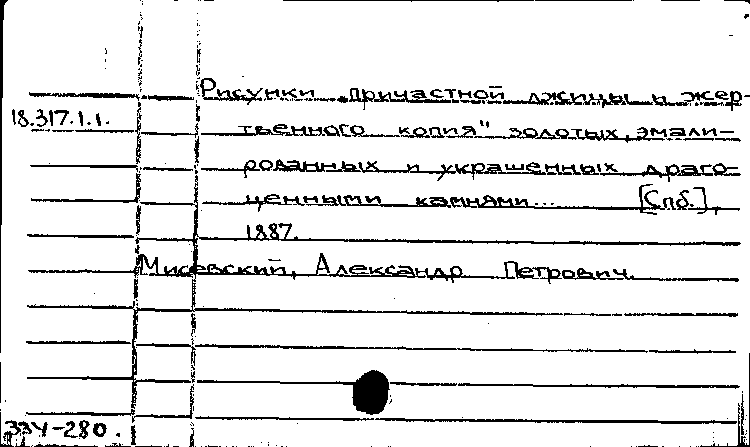 Рисунки „причастной лжицы и жер-
18.317.1.1.
твенного копия" золотых, эмали-
рованных и украшенных драго-
ценными камнями... [Спб.],
1887.
Мисевский, Александр Петрович.
ЗЗУ-280.